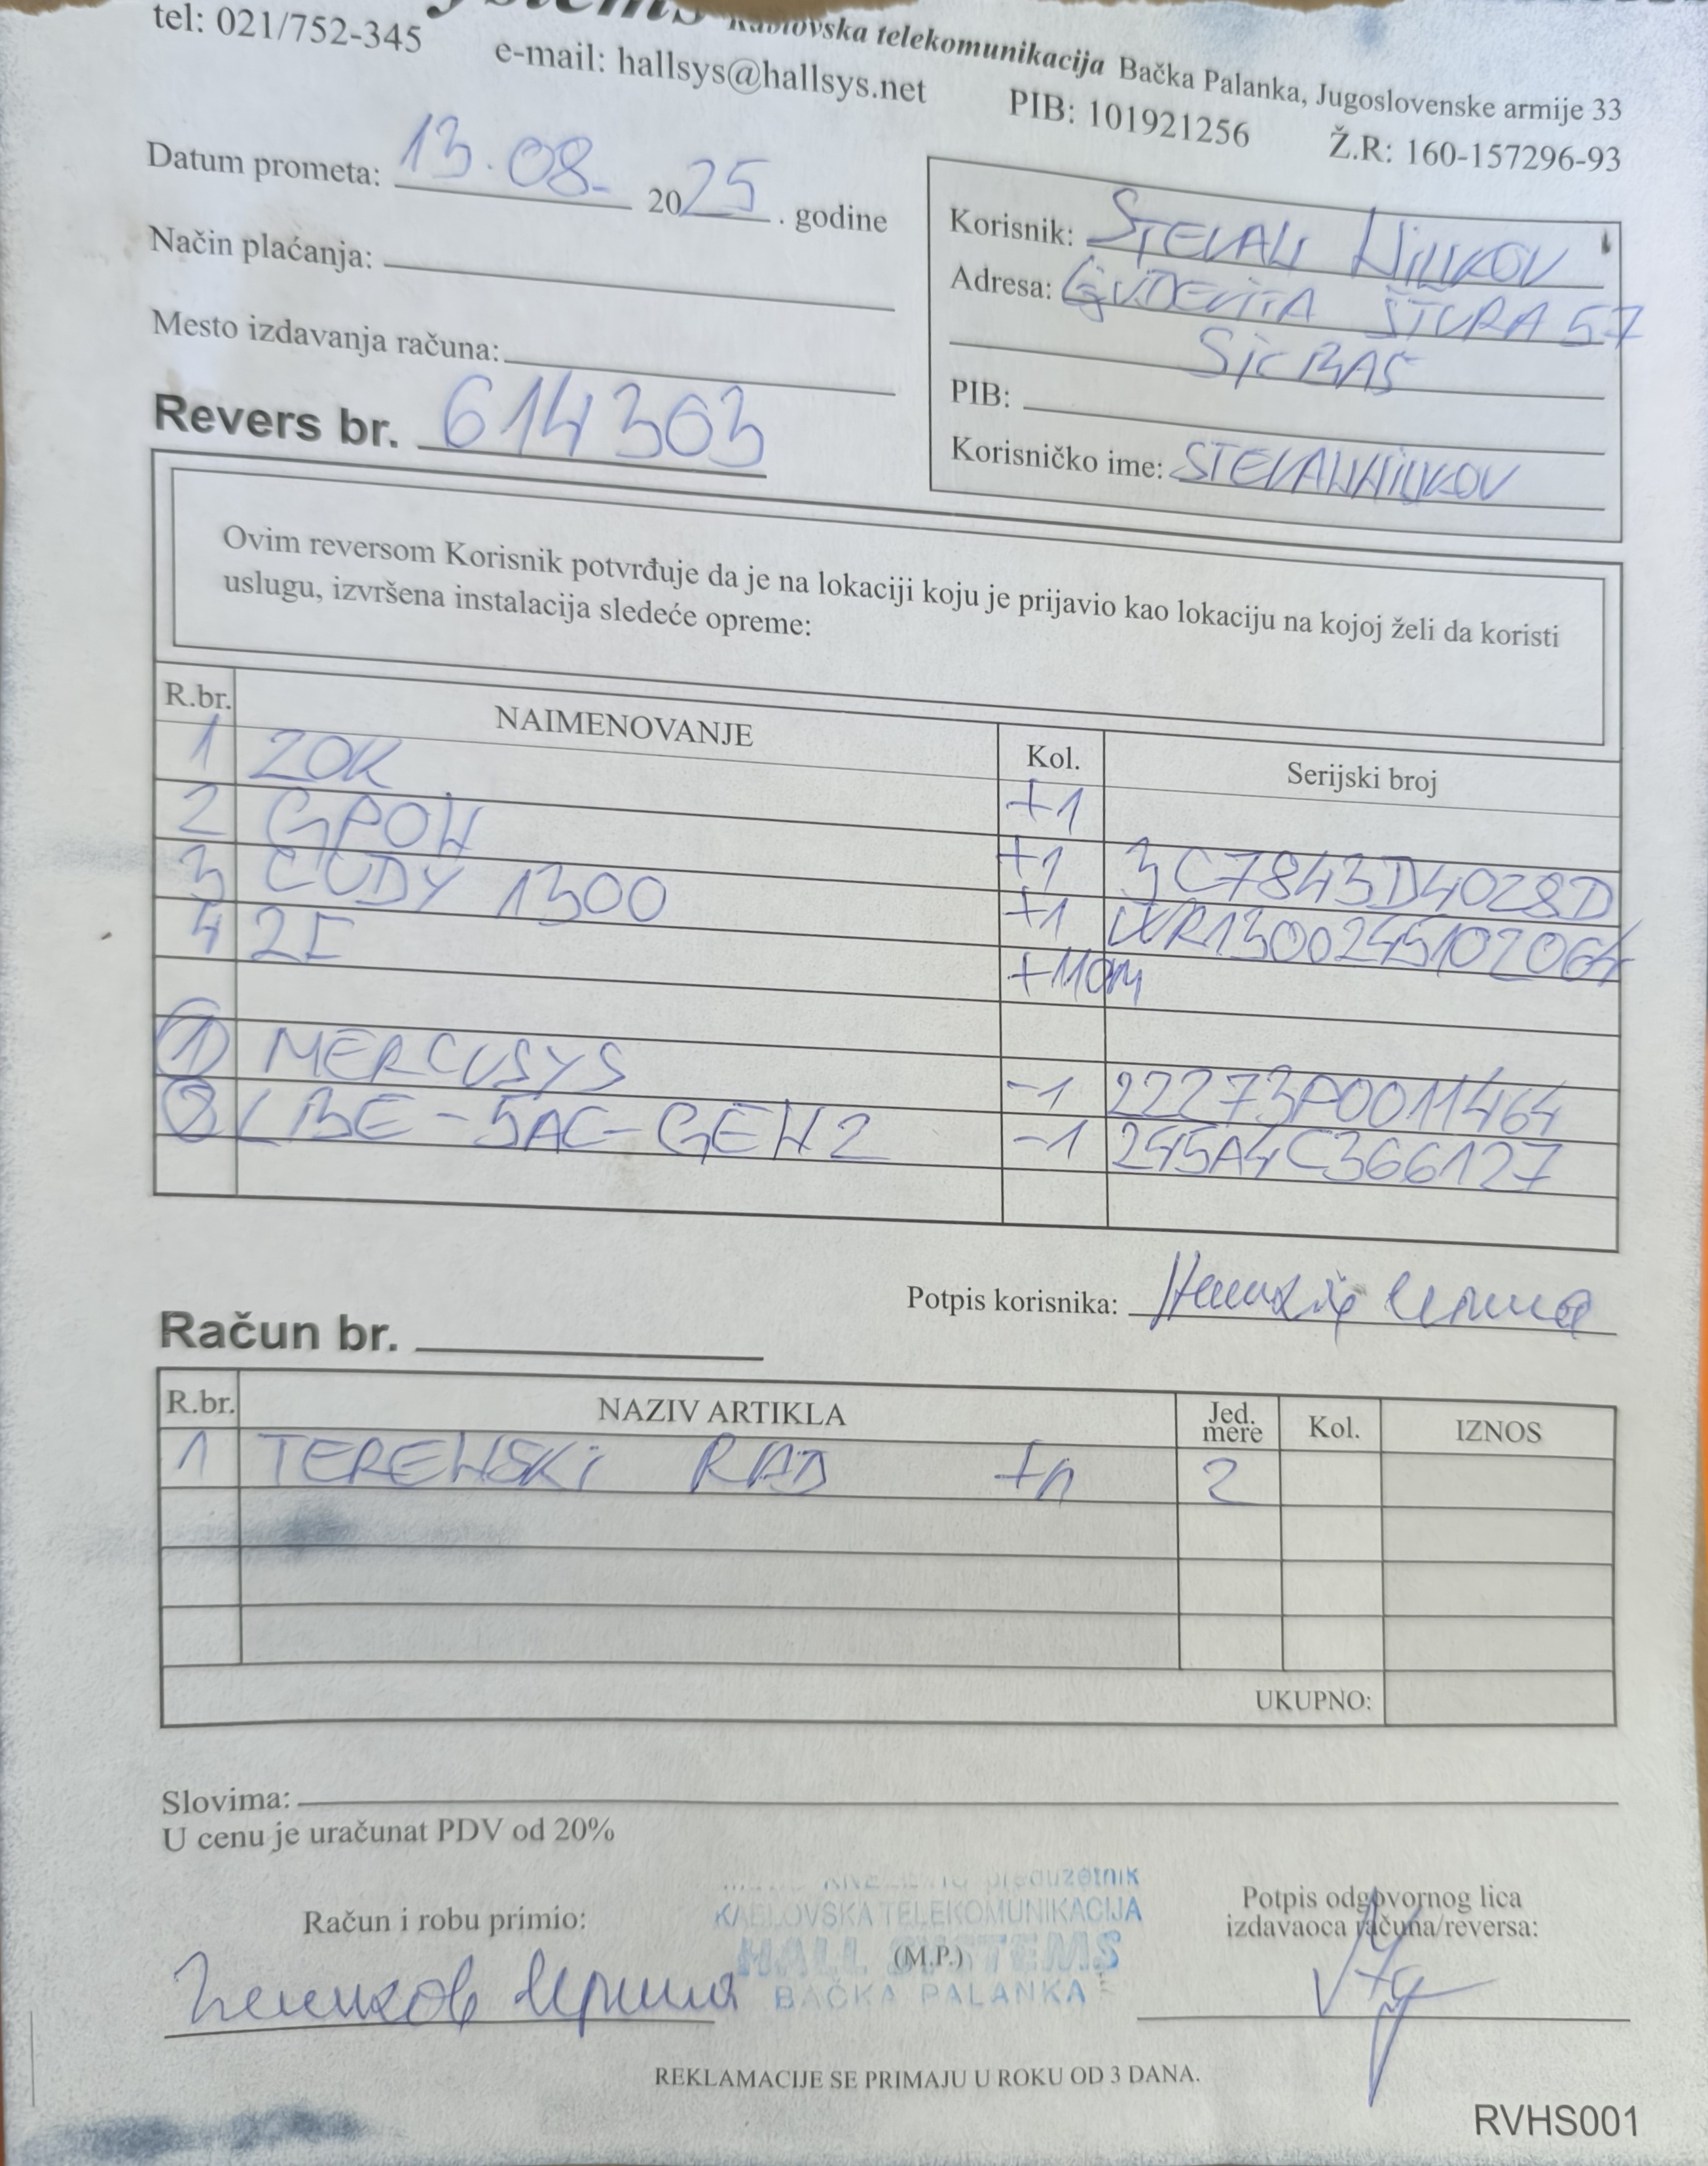 Kablovska telekomunikacija Bačka Palanka, Jugoslovenske armije 33
tel: 021/752-345 e-mail: hallsys@hallsys.net PIB: 101921256 Ž.R: 160-157296-93
Datum prometa: 13.08. 2025. godine
Način plaćanja:
Mesto izdavanja računa:
Revers br. 614303
Korisnik: STEVAN
Adresa: ŠTURA 57
PIB:
Korisničko ime:
Ovim reversom Korisnik potvrđuje da je na lokaciji koju je prijavio kao lokaciju na kojoj želi da koristi
uslugu, izvršena instalacija sledeće opreme:
R.br. NAIMENOVANJE Kol. Serijski broj
1 ZOK +1
2 GPON +1 3C7843D4028D
3 CUDY 1300 +1 WR1300245102064
4 2I +110m
1 MERCUSYS -1 22273P0011464
2 LBE-5AC-GEN2 -1 245A4C366127
Potpis korisnika:
Račun br.
R.br. NAZIV ARTIKLA Jed. mere Kol. IZNOS
1 TERENSKI RAD +1 2
UKUPNO:
Slovima:
U cenu je uračunat PDV od 20%
Račun i robu primio:
preduzetnik
KABLOVSKA TELEKOMUNIKACIJA
HALL SYSTEMS
(M.P.)
BAČKA PALANKA
Potpis odgovornog lica
izdavaoca računa/reversa:
REKLAMACIJE SE PRIMAJU U ROKU OD 3 DANA.
RVHS001